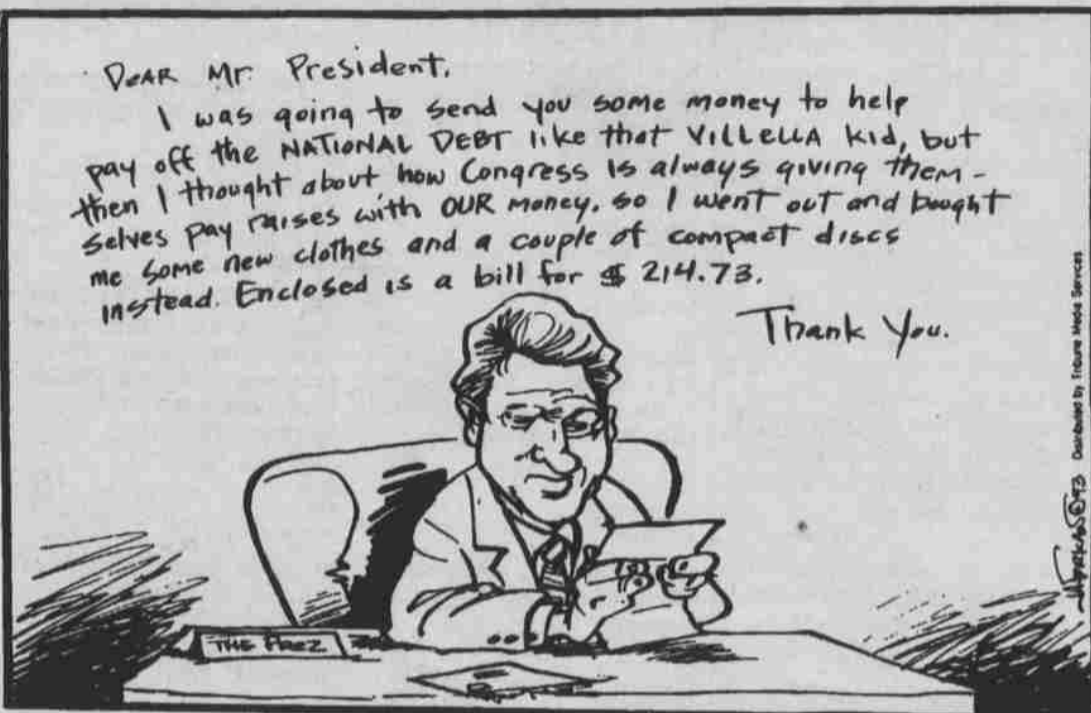 DEAR Mr. President,
I was going to send you some money to help
pay off the NATIONAL DEBT like that VILLELLA kid, but
then I thought about how Congress is always giving them-
selves pay raises with OUR money. so I went out and bought
me some new clothes and a couple of compact discs
instead. Enclosed is a bill for $ 214.73.
Thank You.
THE PREZ
©93 Distributed by Tribune Media Services